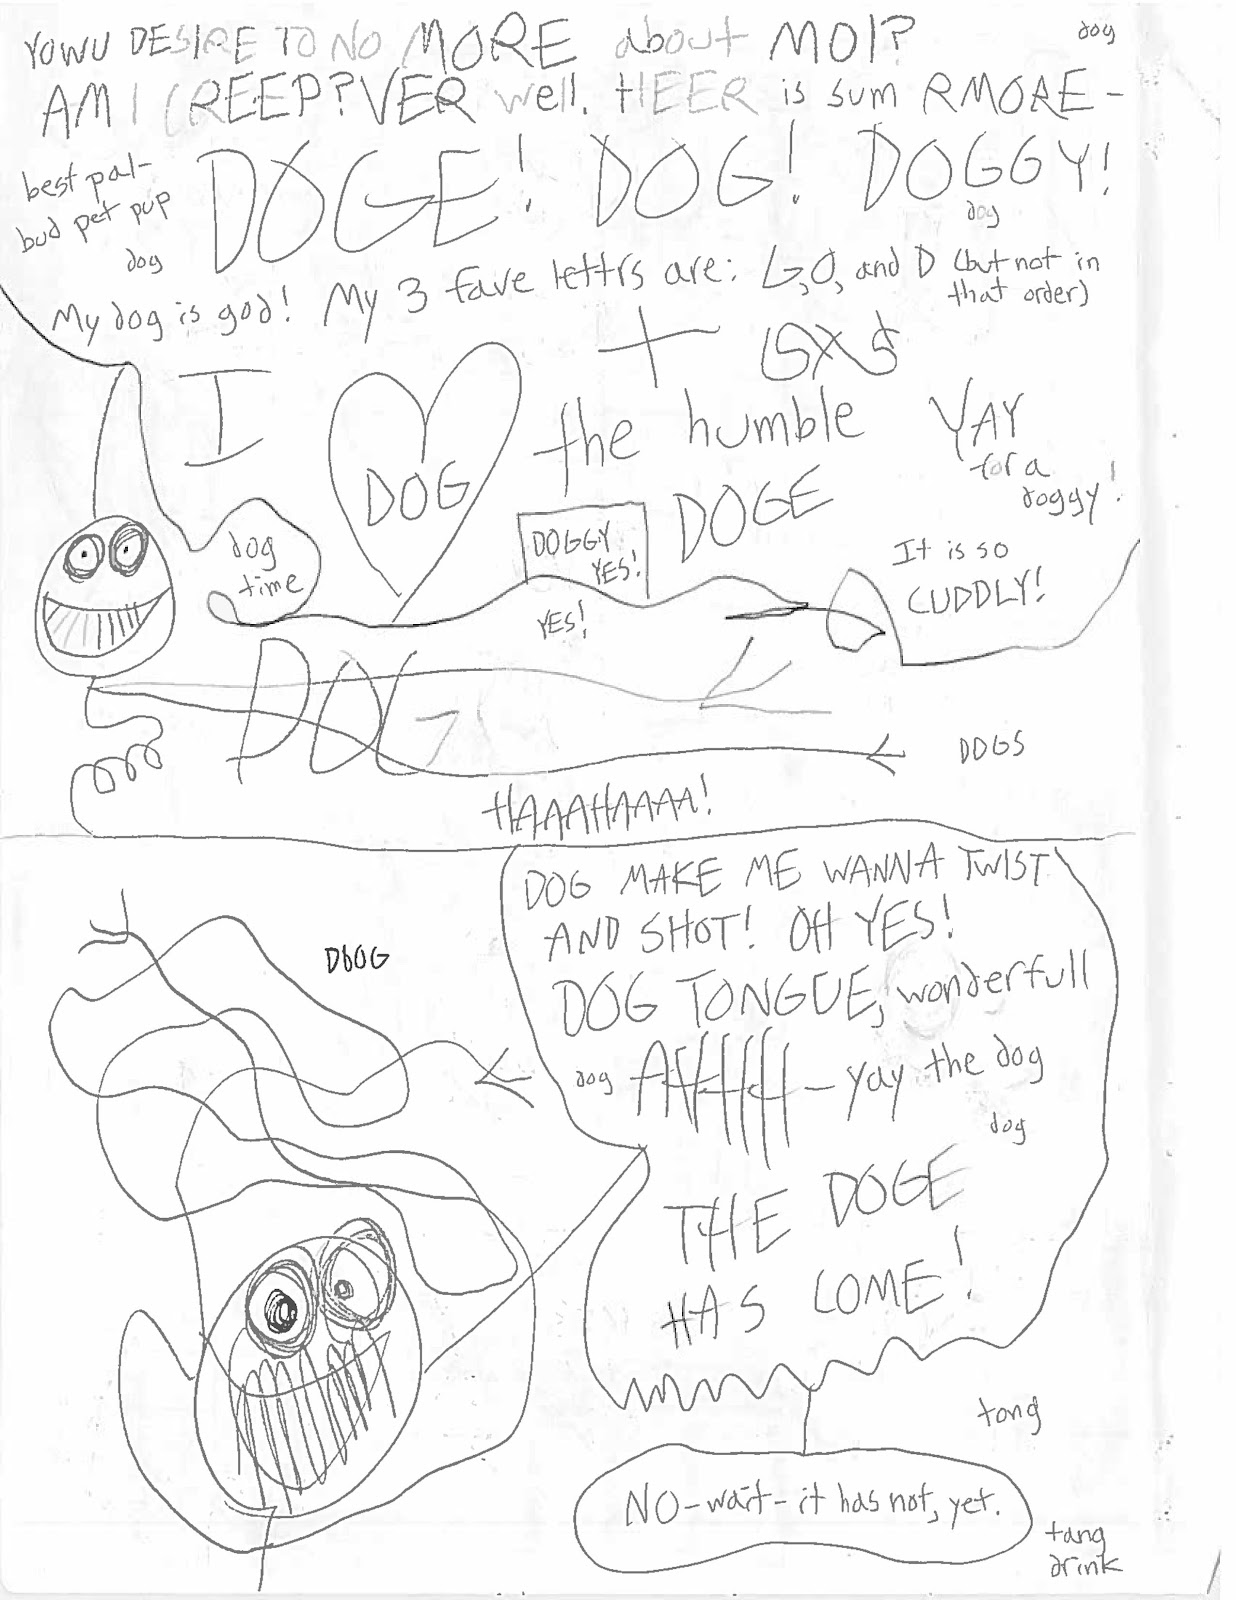 YOWU DESIRE TO NO MORE about MOI?
dog
AM I CREEP? VER well. HEER is sum RMORE-
best pal-
bud pet pup
dog
DOGE! DOG! DOGGY!
dog
My dog is god! My 3 fave lettrs are: G, O, and D (but not in
that order)
I
DOG
the humble
DOGE
YAY
for a
doggy!
dog
time
DOGGY
YES!
YES!
It is so
CUDDLY!
DOG
DOGS
HAAAHAAAA!
DOG MAKE ME WANNA TWIST
AND SHOT! OH YES!
DOG TONGUE, wonderfull
dog
AHHHH - yay the dog
dog
THE DOGE
HAS COME!
DbOG
tong
NO-wait-it has not, yet.
tang
drink